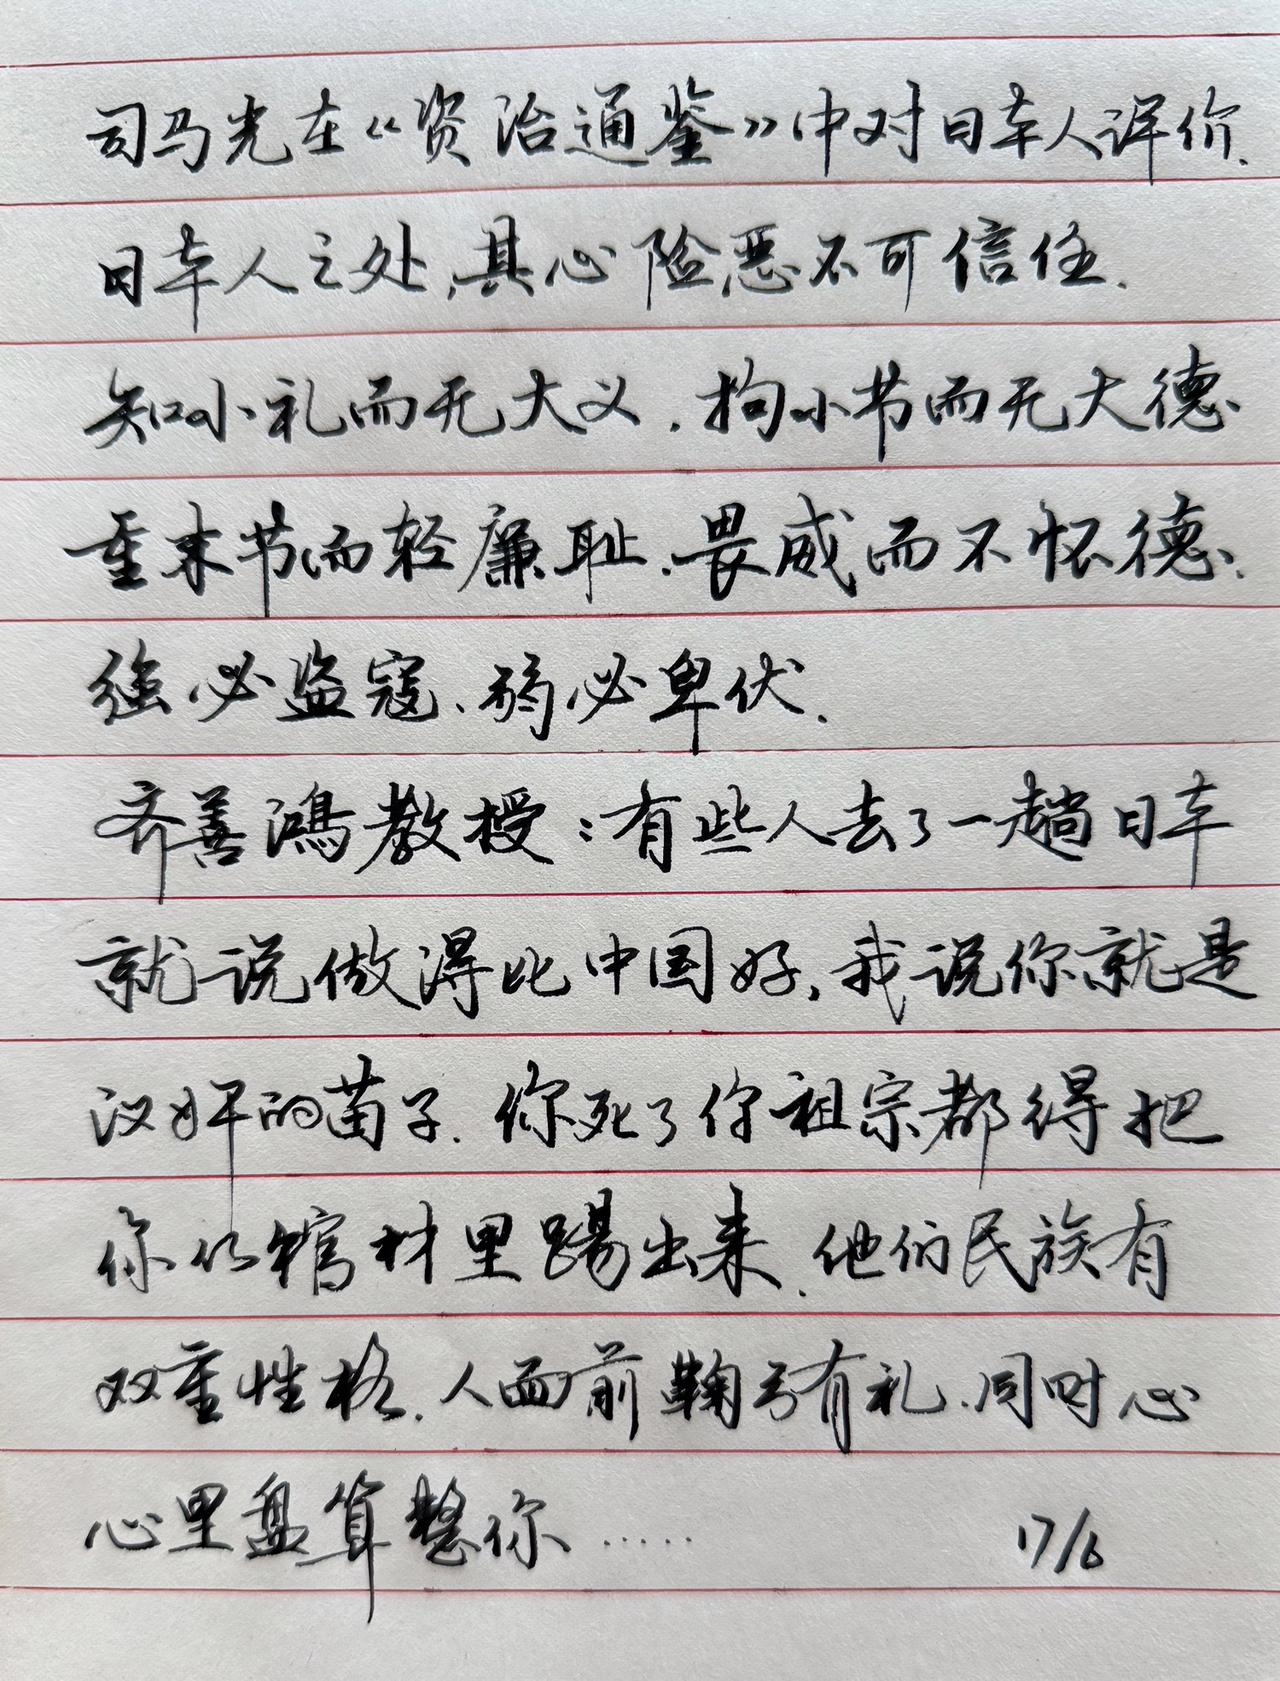 司马光在《资治通鉴》中对日本人评价.
日本人之处,其心险恶不可信任.
知小礼而无大义.拘小节而无大德、
重末节而轻廉耻.畏威而不怀德、
强必盗寇、弱必卑伏.
齐善鸿教授:有些人去了一趟日本
就说做得比中国好,我说你就是
汉奸的苗子.你死了你祖宗都得把
你从棺材里踢出来.他们民族有
双重性格.人面前鞠弓有礼.同时心
心里盘算整你……
17/6